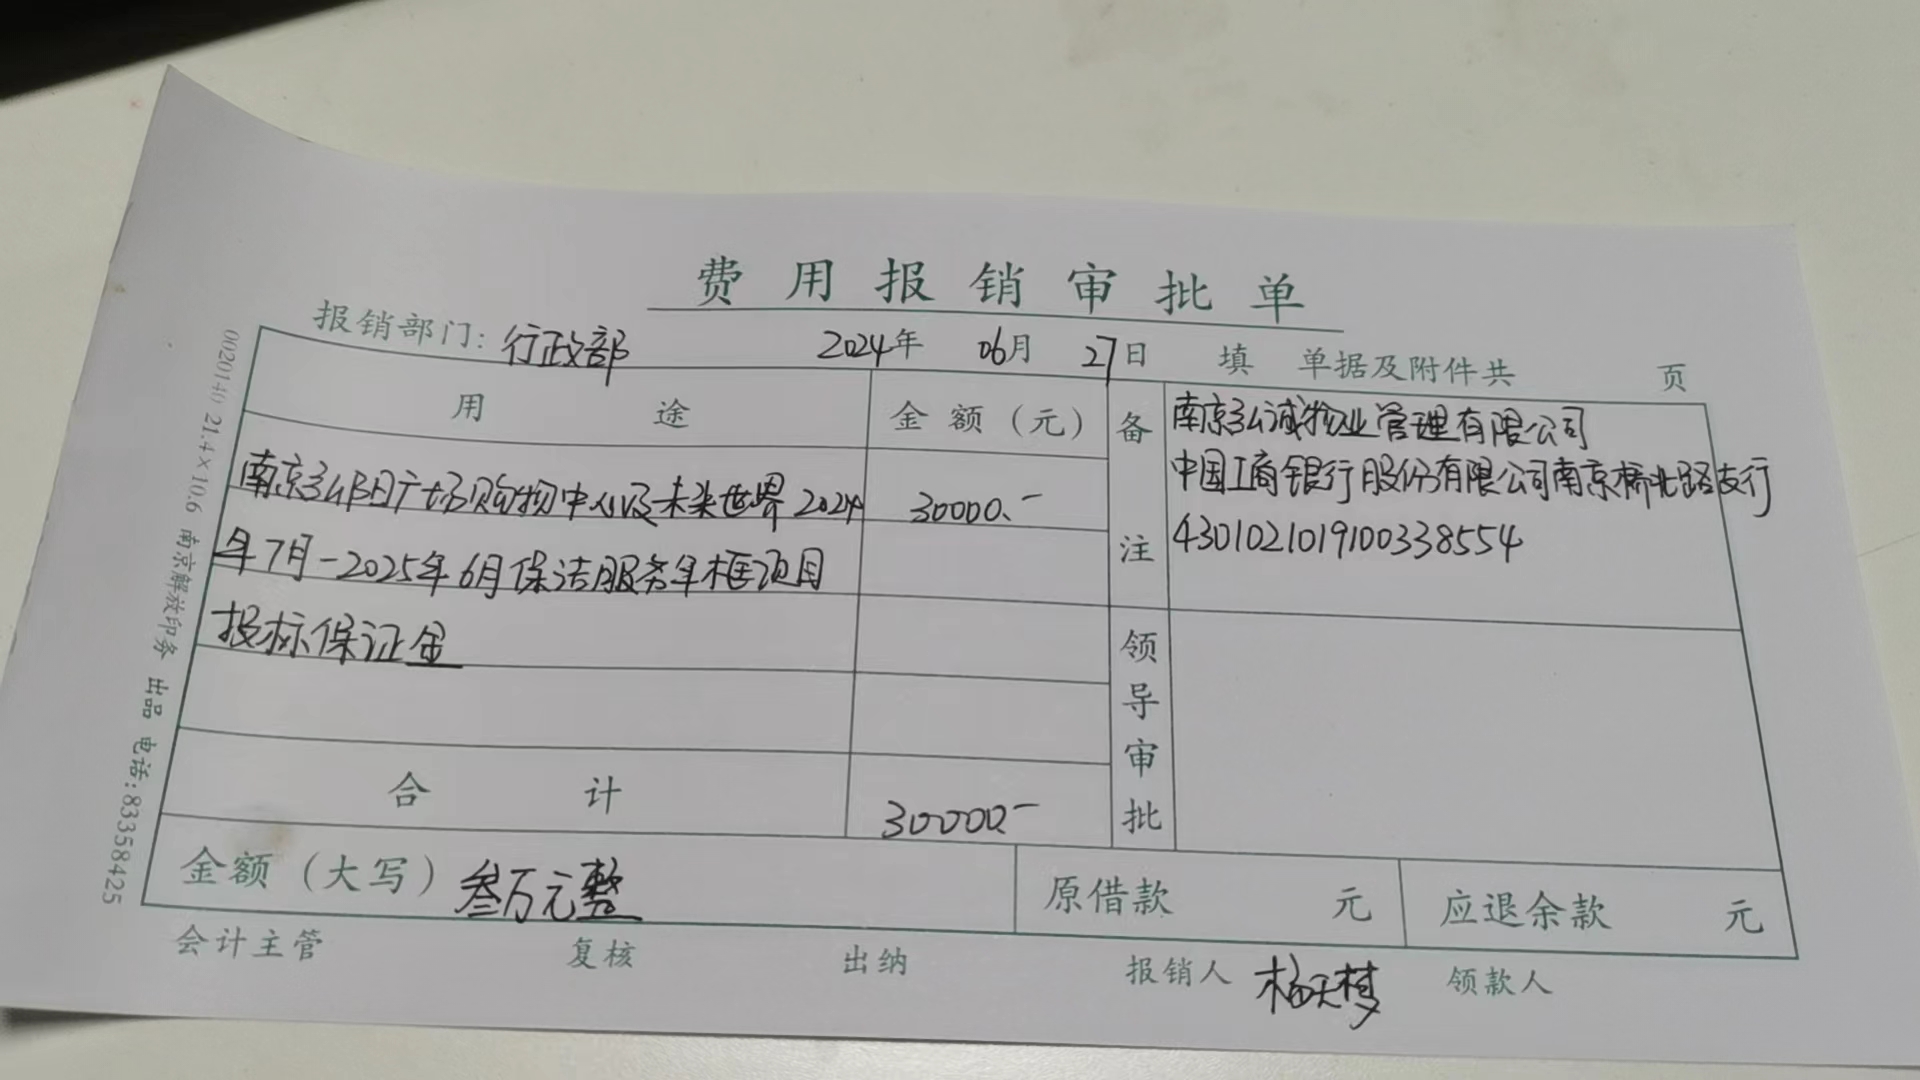 费用报销审批单
报销部门：行政部 2024年 06月 27日 填 单据及附件共 页
用途 金额（元） 备注
南京弘阳广场购物中心及未来世界2024 30000.-
年7月-2025年6月保洁服务年框项目
投标保证金
南京弘诚物业管理有限公司
中国工商银行股份有限公司南京桥北路支行
4301021019100338554
领导审批
合计 30000.-
金额（大写）叁万元整 原借款 元 应退余款 元
会计主管 复核 出纳 报销人 杨天梦 领款人
21.4×10.6 南京解放印务 出品 电话:83358425